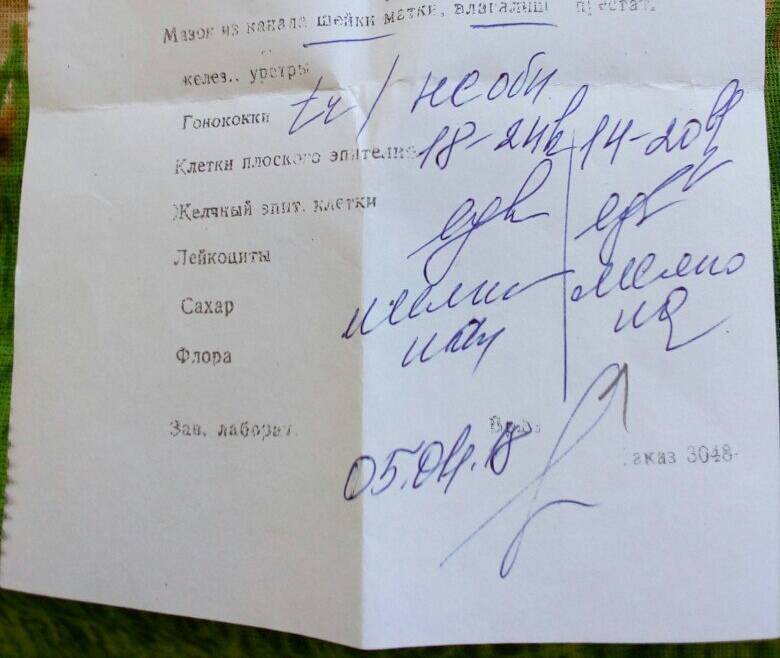 Мазок из канала шейки матки, влагалищ престат.
желез.. уретры
Гонококки tr/ не обн
Клетки плоского эпителие 18-24 14-20
Желчный эпит. клетки
Лейкоциты едв едв
Сахар мелко мелко
Флора
Зав. лаборат.
05.04.18
аказ 3048-